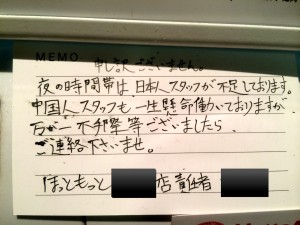 MEMO
申し訳ございません。
夜の時間帯は日本人スタッフが不足しております。
中国人スタッフも一生懸命働いておりますが、
万が一不手際等ございましたら、
ご連絡下さいませ。
ほっともっと 店責任者